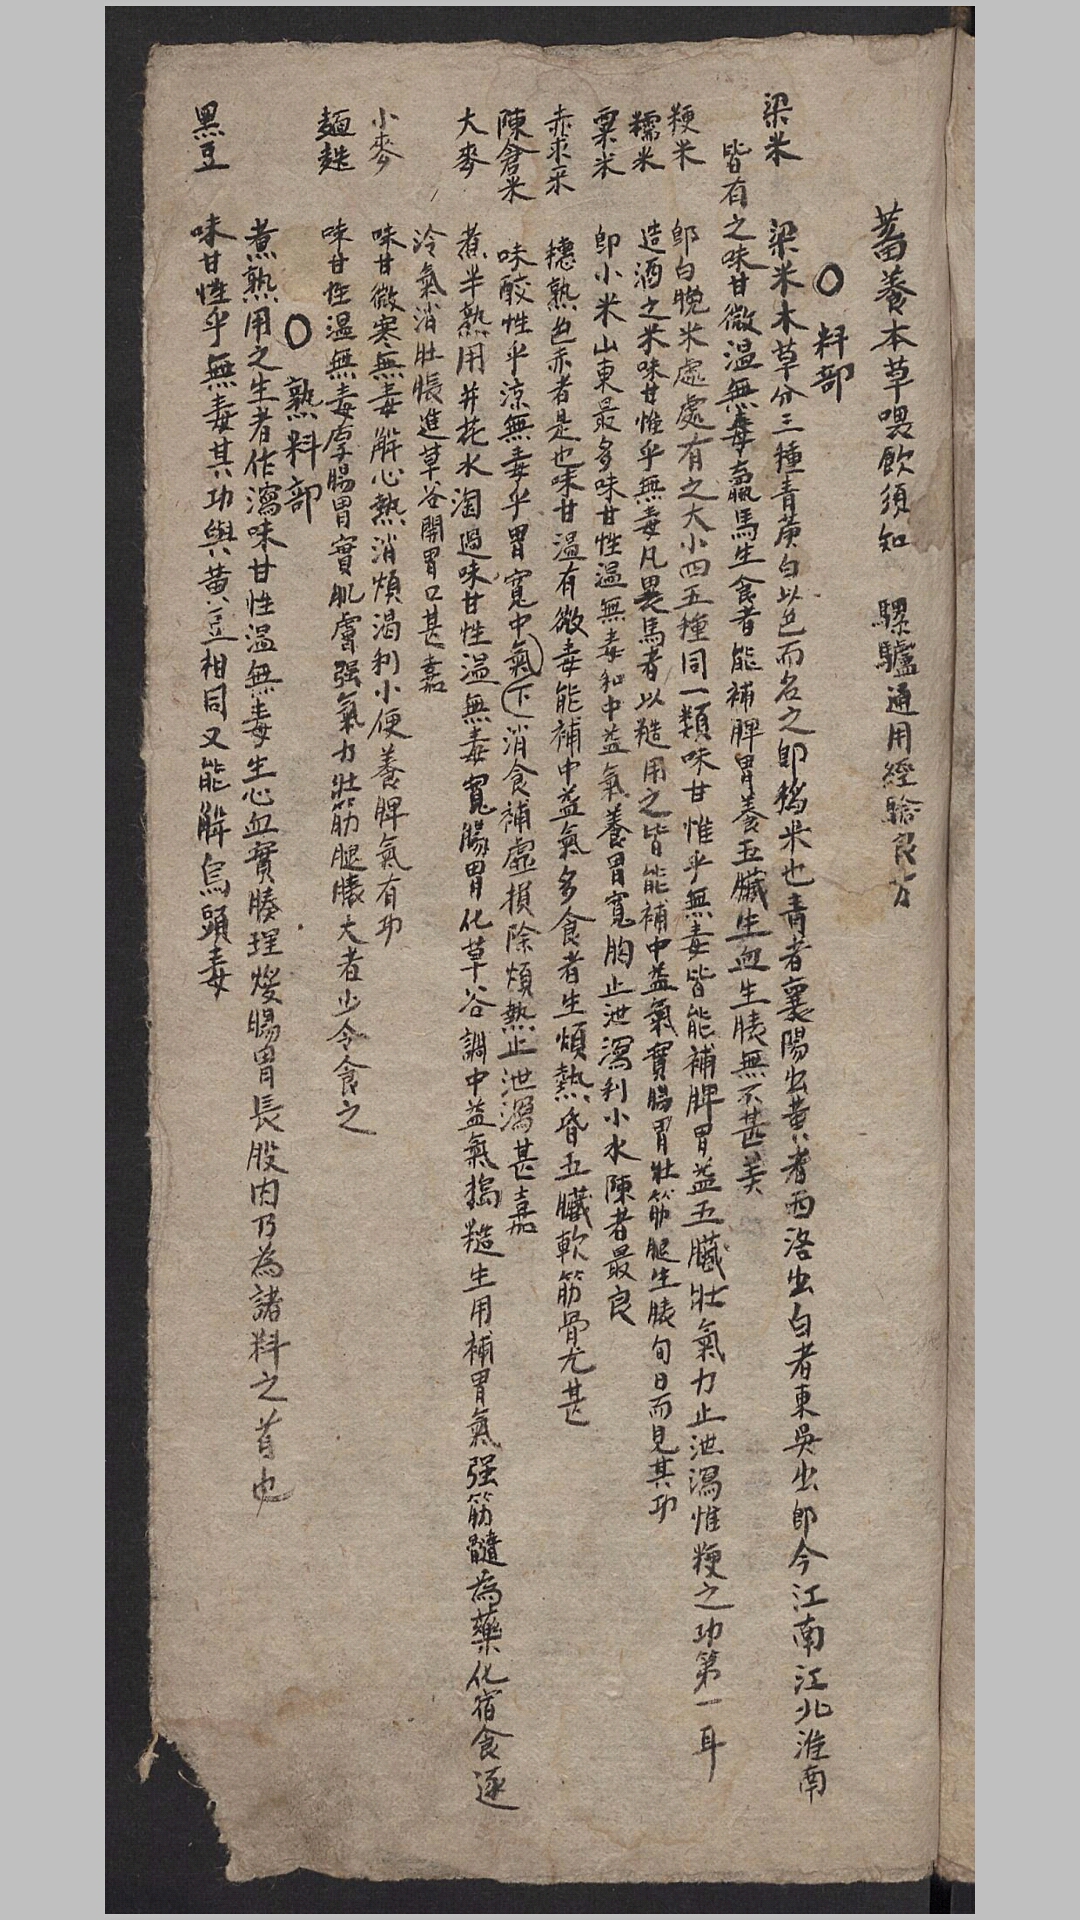 蓄養本草喂飲須知 騾驢通用經驗良方
〇料部
梁米 梁米木草分三種青黄白以色而名之即稻米也青者襄陽出黄者西洛出白者東吳出即今江南江北淮南
皆有之味甘微温無毒羸馬生食者能補脾胃養五臟生血生膘無不甚美
粳米 即白晚米處處有之大小四五種同一類味甘惟乎無毒皆能補脾胃益五臟壯氣力止泄瀉惟粳之功第一耳
糯米 造酒之米味甘惟乎無毒凡畏馬者以糙用之皆能補中益氣實腸胃壯筋腿生膘旬日而見其功
粟米 即小米山東最多味甘性温無毒和中益氣養胃寬胸止泄瀉利小水陳者最良
赤米 穗熟色赤者是也味甘温有微毒能補中益氣多食者生煩熱昏五臟軟筋骨尤甚
陳倉米 味酸性乎涼無毒乎胃寬中氣下消食補虛損除煩熱止泄瀉甚嘉
大麥 煮半熟用井花水淘過味甘性温無毒寬腸胃化草谷調中益氣搗糙生用補胃氣强筋髓為藥化宿食逐
冷氣消肚脹進草谷開胃口甚嘉
小麥 味甘微寒無毒解心熱消煩渴利小便養脾氣有功
麵麩 味甘性温無毒厚腸胃實肌膚强氣力壯筋腿膘大者少令食之
〇熟料部
煮熟用之生者作瀉味甘性温無毒生心血實腠理煖腸胃長股肉乃為諸料之首也
黑豆 味甘性乎無毒其功與黄豆相同又能解烏頭毒